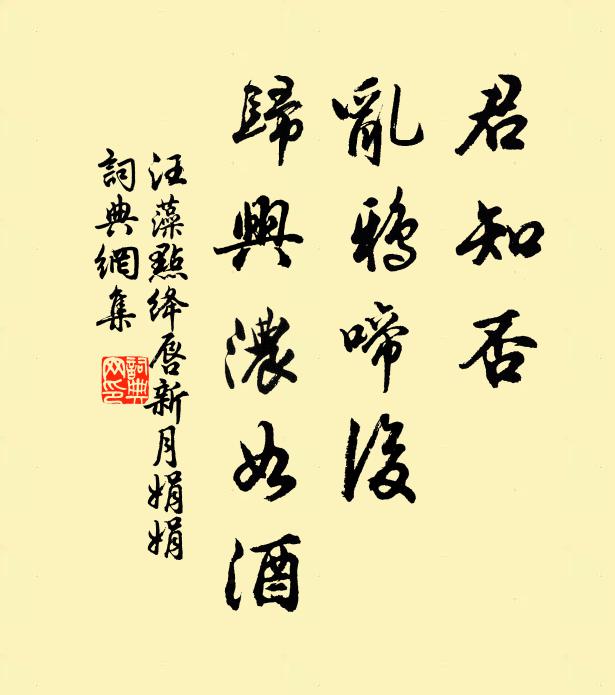 君知否
亂鴉啼後
歸興濃如酒
汪藻點絳唇新月娟娟
詞典網集
詞典網印